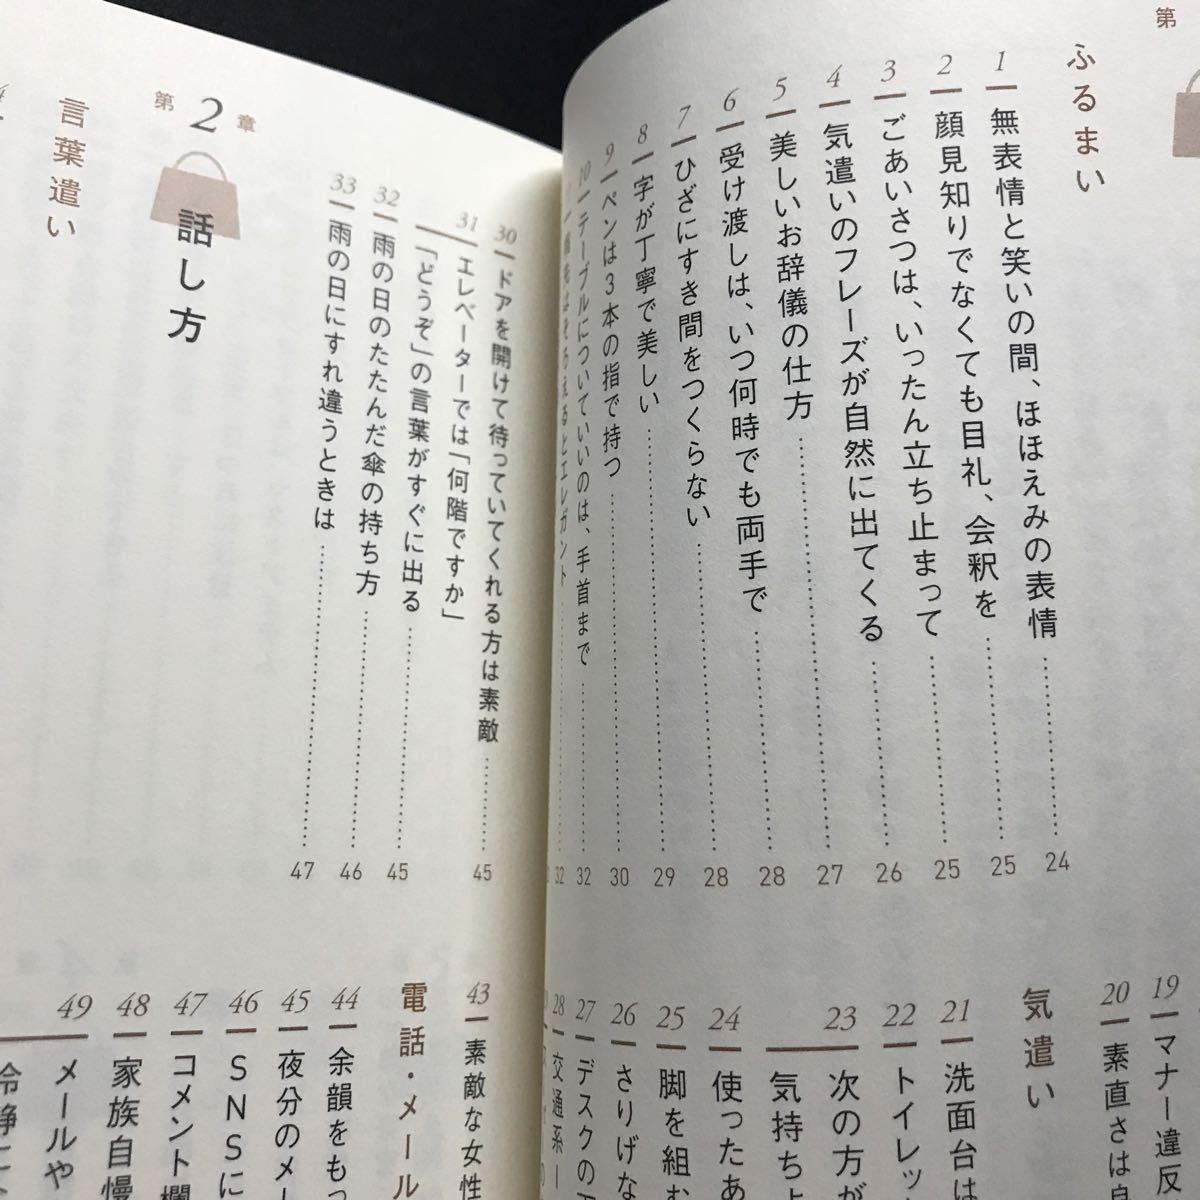 第
ふるまい
1 無表情と笑いの間、ほほえみの表情 24
2 顔見知りでなくても目礼、会釈を 25
3 ごあいさつは、いったん立ち止まって 25
4 気遣いのフレーズが自然に出てくる 26
5 美しいお辞儀の仕方 27
6 受け渡しは、いつ何時でも両手で 28
7 ひざにすき間をつくらない 28
8 字が丁寧で美しい 29
9 ペンは3本の指で持つ 30
10 テーブルについていいのは、手首まで 32
はそろえるとエレガント 32
19 マナー違反
20 素直さは
気遣い
21 洗面台は
22 トイレッ
23 次の方が
気持ちよ
24 使ったあ
25 脚を組む
26 さりげな
27 デスクの下
28 交通系
30 ドアを開けて待っていてくれる方は素敵 45
31 エレベーターでは「何階ですか」
「どうぞ」の言葉がすぐに出る 45
32 雨の日のたたんだ傘の持ち方 46
33 雨の日にすれ違うときは 47
第2章
話し方
言葉遣い
43 素敵な女性
電話・メール
44 余韻をもっ
45 夜分のメー
46 SNSに
47 コメント欄
48 家族自慢
49 メールや
冷静に